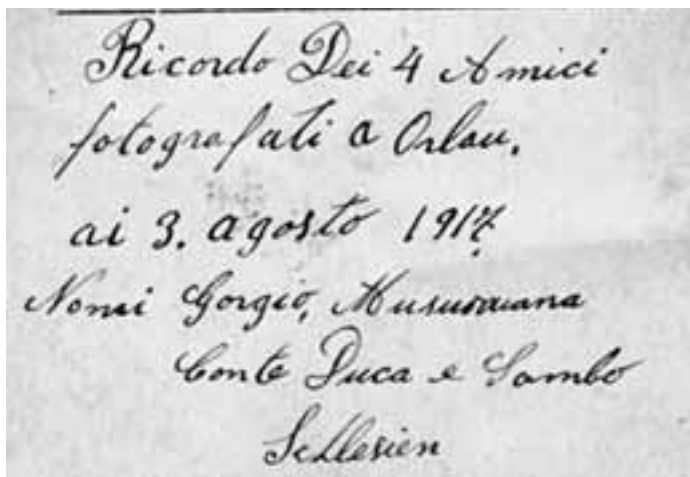 Ricordo Dei 4 Amici
fotografati a Orlau.
ai 3. agosto 1917.
Nomi Gorgio,
Conte Duca e Sambo
Schlesien